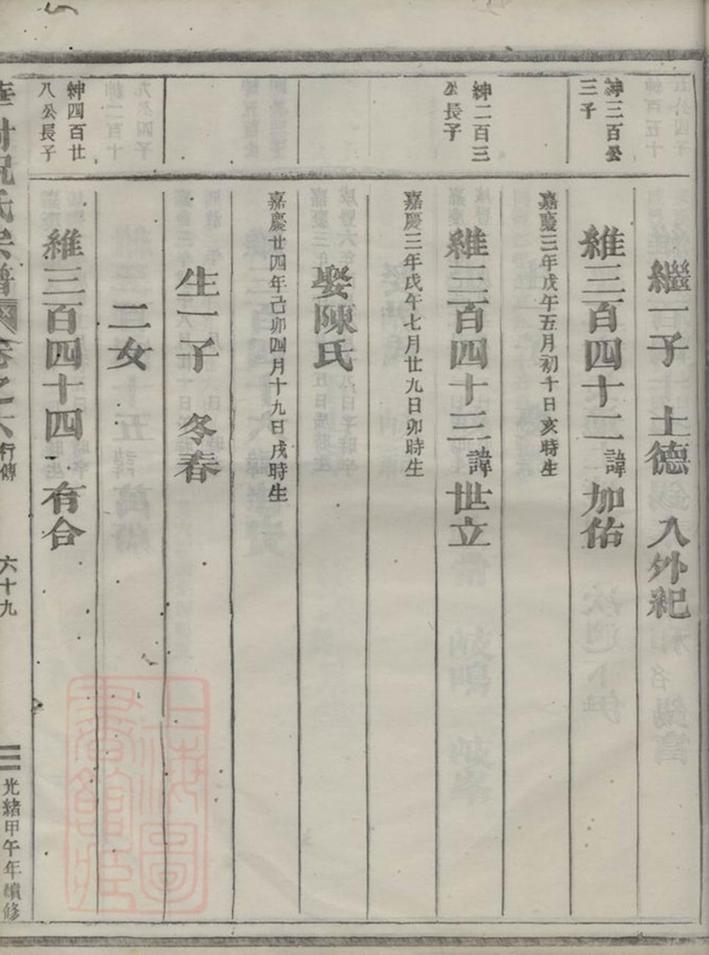 繼一子 士德 入外紀
紳三百公
三子
維三百四十二 諱 加佑
嘉慶三年戊午五月初十日亥時生
紳二百三
公長子
維三百四十三 諱 世立
嘉慶三年戊午七月廿九日卯時生
娶陳氏
嘉慶廿四年己卯四月十九日戌時生
生一子 冬春
二女
紳四百廿
八公長子
維三百四十四 有合
村祝氏宗譜 卷之六 行傳 六十九
光緒甲午年續修
上海圖書館藏